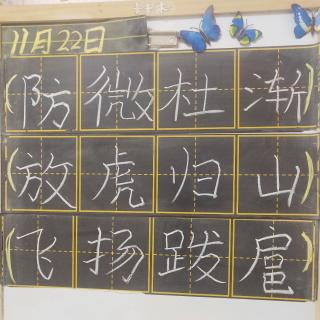 11月22日
(防微杜渐)
(放虎归山)
(飞扬跋扈)